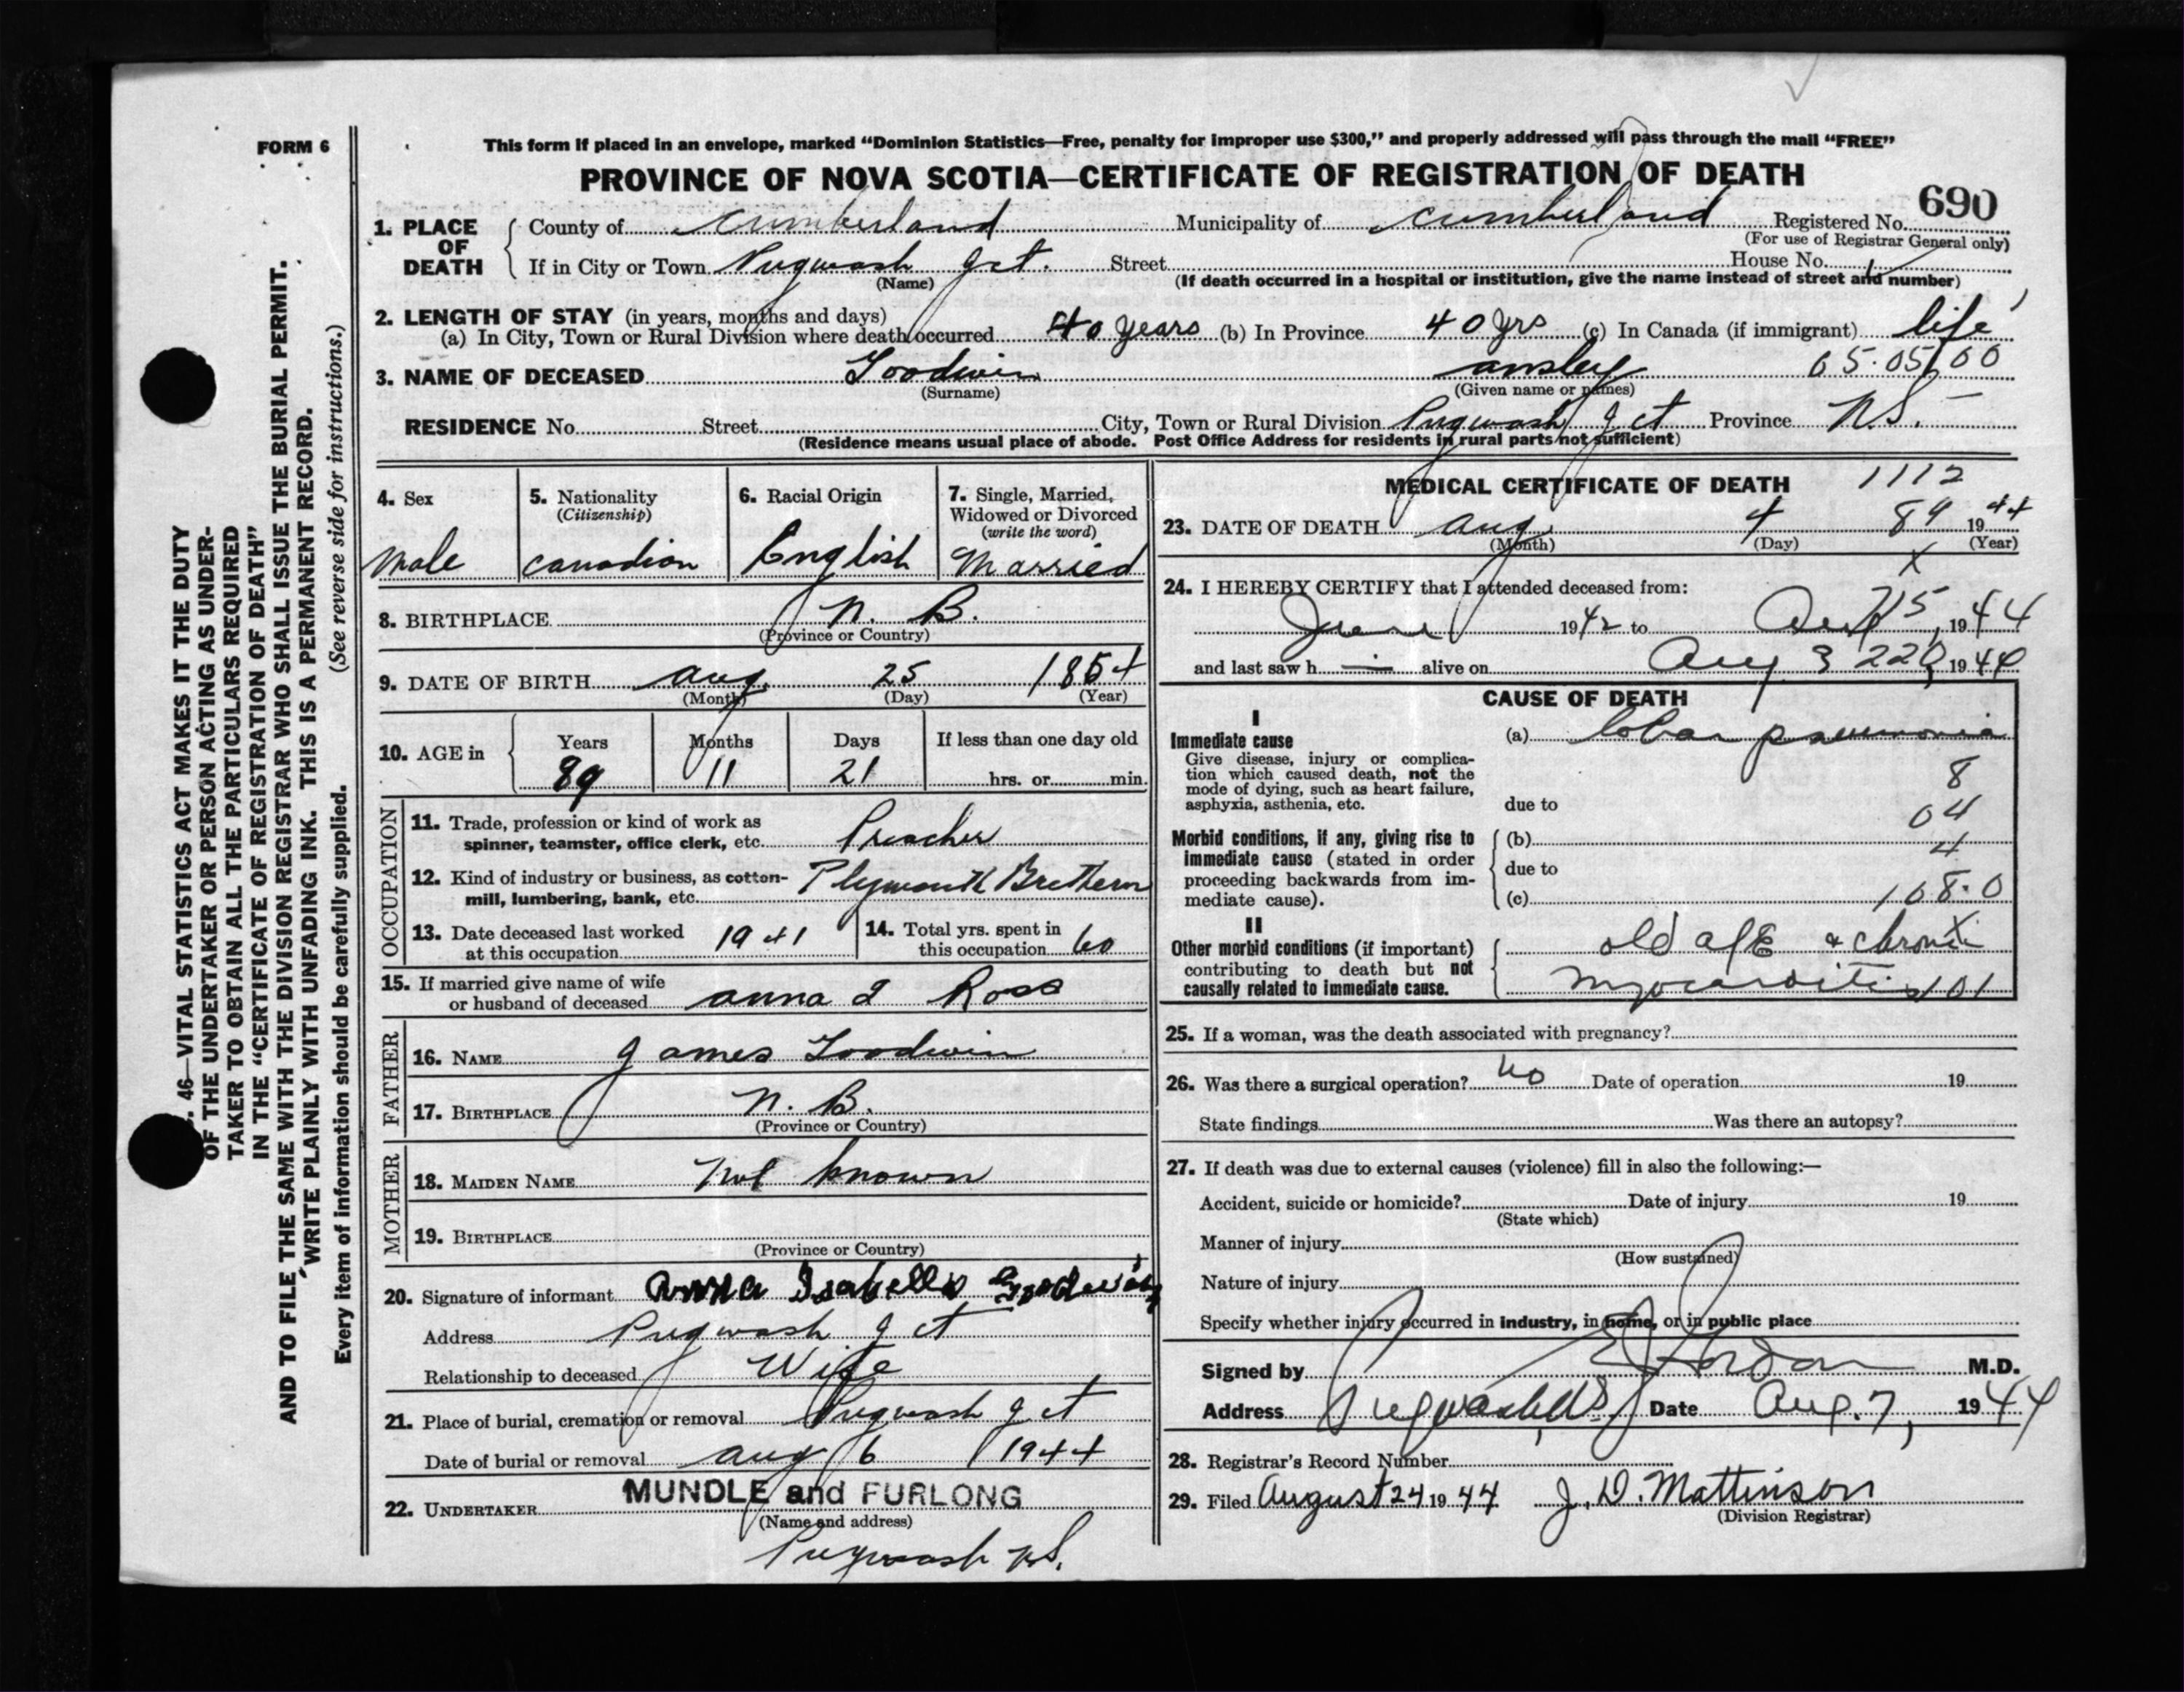 FORM 6
This form if placed in an envelope, marked “Dominion Statistics—Free, penalty for improper use $300,” and properly addressed will pass through the mail “FREE”
PROVINCE OF NOVA SCOTIA—CERTIFICATE OF REGISTRATION OF DEATH
690
1. PLACE OF DEATH
County of Cumberland Municipality of Cumberland Registered No.
(For use of Registrar General only)
If in City or Town Pugwash Jct. Street House No.
(Name) (If death occurred in a hospital or institution, give the name instead of street and number)
2. LENGTH OF STAY (in years, months and days)
(a) In City, Town or Rural Division where death occurred 40 years (b) In Province 40 yrs (c) In Canada (if immigrant) life
3. NAME OF DECEASED Goodwin ansley 65.05 00
(Surname) (Given name or names)
RESIDENCE No. Street City, Town or Rural Division Pugwash Jct Province N.S.
(Residence means usual place of abode. Post Office Address for residents in rural parts not sufficient)
4. Sex
Male
5. Nationality
(Citizenship)
Canadian
6. Racial Origin
English
7. Single, Married,
Widowed or Divorced
(write the word)
Married
8. BIRTHPLACE N. B.
(Province or Country)
9. DATE OF BIRTH aug. 25 1854
(Month) (Day) (Year)
10. AGE in
Years Months Days If less than one day old
89 11 21 hrs. or min.
OCCUPATION
11. Trade, profession or kind of work as
spinner, teamster, office clerk, etc. Preacher
12. Kind of industry or business, as cotton-
mill, lumbering, bank, etc. Plymouth Brethern
13. Date deceased last worked
at this occupation 1941
14. Total yrs. spent in
this occupation 60
15. If married give name of wife
or husband of deceased anna I Ross
FATHER
16. NAME James Goodwin
17. BIRTHPLACE N. B.
(Province or Country)
MOTHER
18. MAIDEN NAME Not known
19. BIRTHPLACE
(Province or Country)
20. Signature of informant Anna Isabella Goodwin
Address Pugwash Jct
Relationship to deceased Wife
21. Place of burial, cremation or removal Pugwash Jct
Date of burial or removal aug 6 1944
22. UNDERTAKER MUNDLE and FURLONG
(Name and address)
Pugwash N.S.
MEDICAL CERTIFICATE OF DEATH 1112
23. DATE OF DEATH aug 4 89 1944
(Month) (Day) (Year)
x
24. I HEREBY CERTIFY that I attended deceased from:
June 1942 to 1944
and last saw h alive on Aug 3 1944
CAUSE OF DEATH
I
Immediate cause
Give disease, injury or complica-
tion which caused death, not the
mode of dying, such as heart failure,
asphyxia, asthenia, etc.
(a) lobar pneumonia
8
due to
04
Morbid conditions, if any, giving rise to
immediate cause (stated in order
proceeding backwards from im-
mediate cause).
(b)
4
due to
(c) 108.0
II
Other morbid conditions (if important)
contributing to death but not
causally related to immediate cause.
old age & chronic
myocarditis 101
25. If a woman, was the death associated with pregnancy?
26. Was there a surgical operation? no Date of operation 19
State findings Was there an autopsy?
27. If death was due to external causes (violence) fill in also the following:—
Accident, suicide or homicide? Date of injury 19
(State which)
Manner of injury
(How sustained)
Nature of injury
Specify whether injury occurred in industry, in home, or in public place
Signed by M.D.
Address Pugwash, N.S. Date Aug. 7, 1944
28. Registrar's Record Number
29. Filed August 24 1944 J. D. Mattinson
(Division Registrar)
. 46—VITAL STATISTICS ACT MAKES IT THE DUTY
OF THE UNDERTAKER OR PERSON ACTING AS UNDER-
TAKER TO OBTAIN ALL THE PARTICULARS REQUIRED
IN THE “CERTIFICATE OF REGISTRATION OF DEATH”
AND TO FILE THE SAME WITH THE DIVISION REGISTRAR WHO SHALL ISSUE THE BURIAL PERMIT.
WRITE PLAINLY WITH UNFADING INK. THIS IS A PERMANENT RECORD.
Every item of information should be carefully supplied. (See reverse side for instructions.)